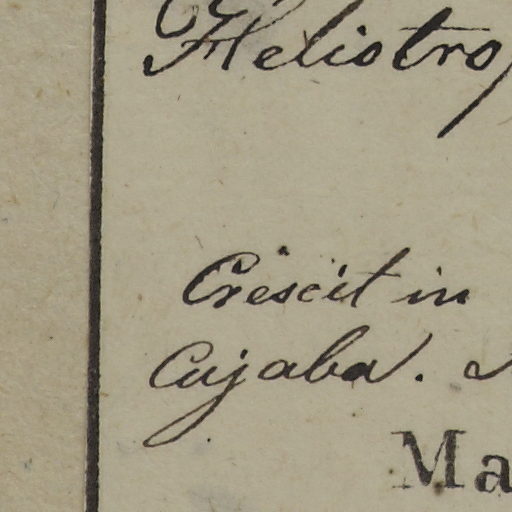 Heliotrop
Crescit in
Cujaba.
Ma